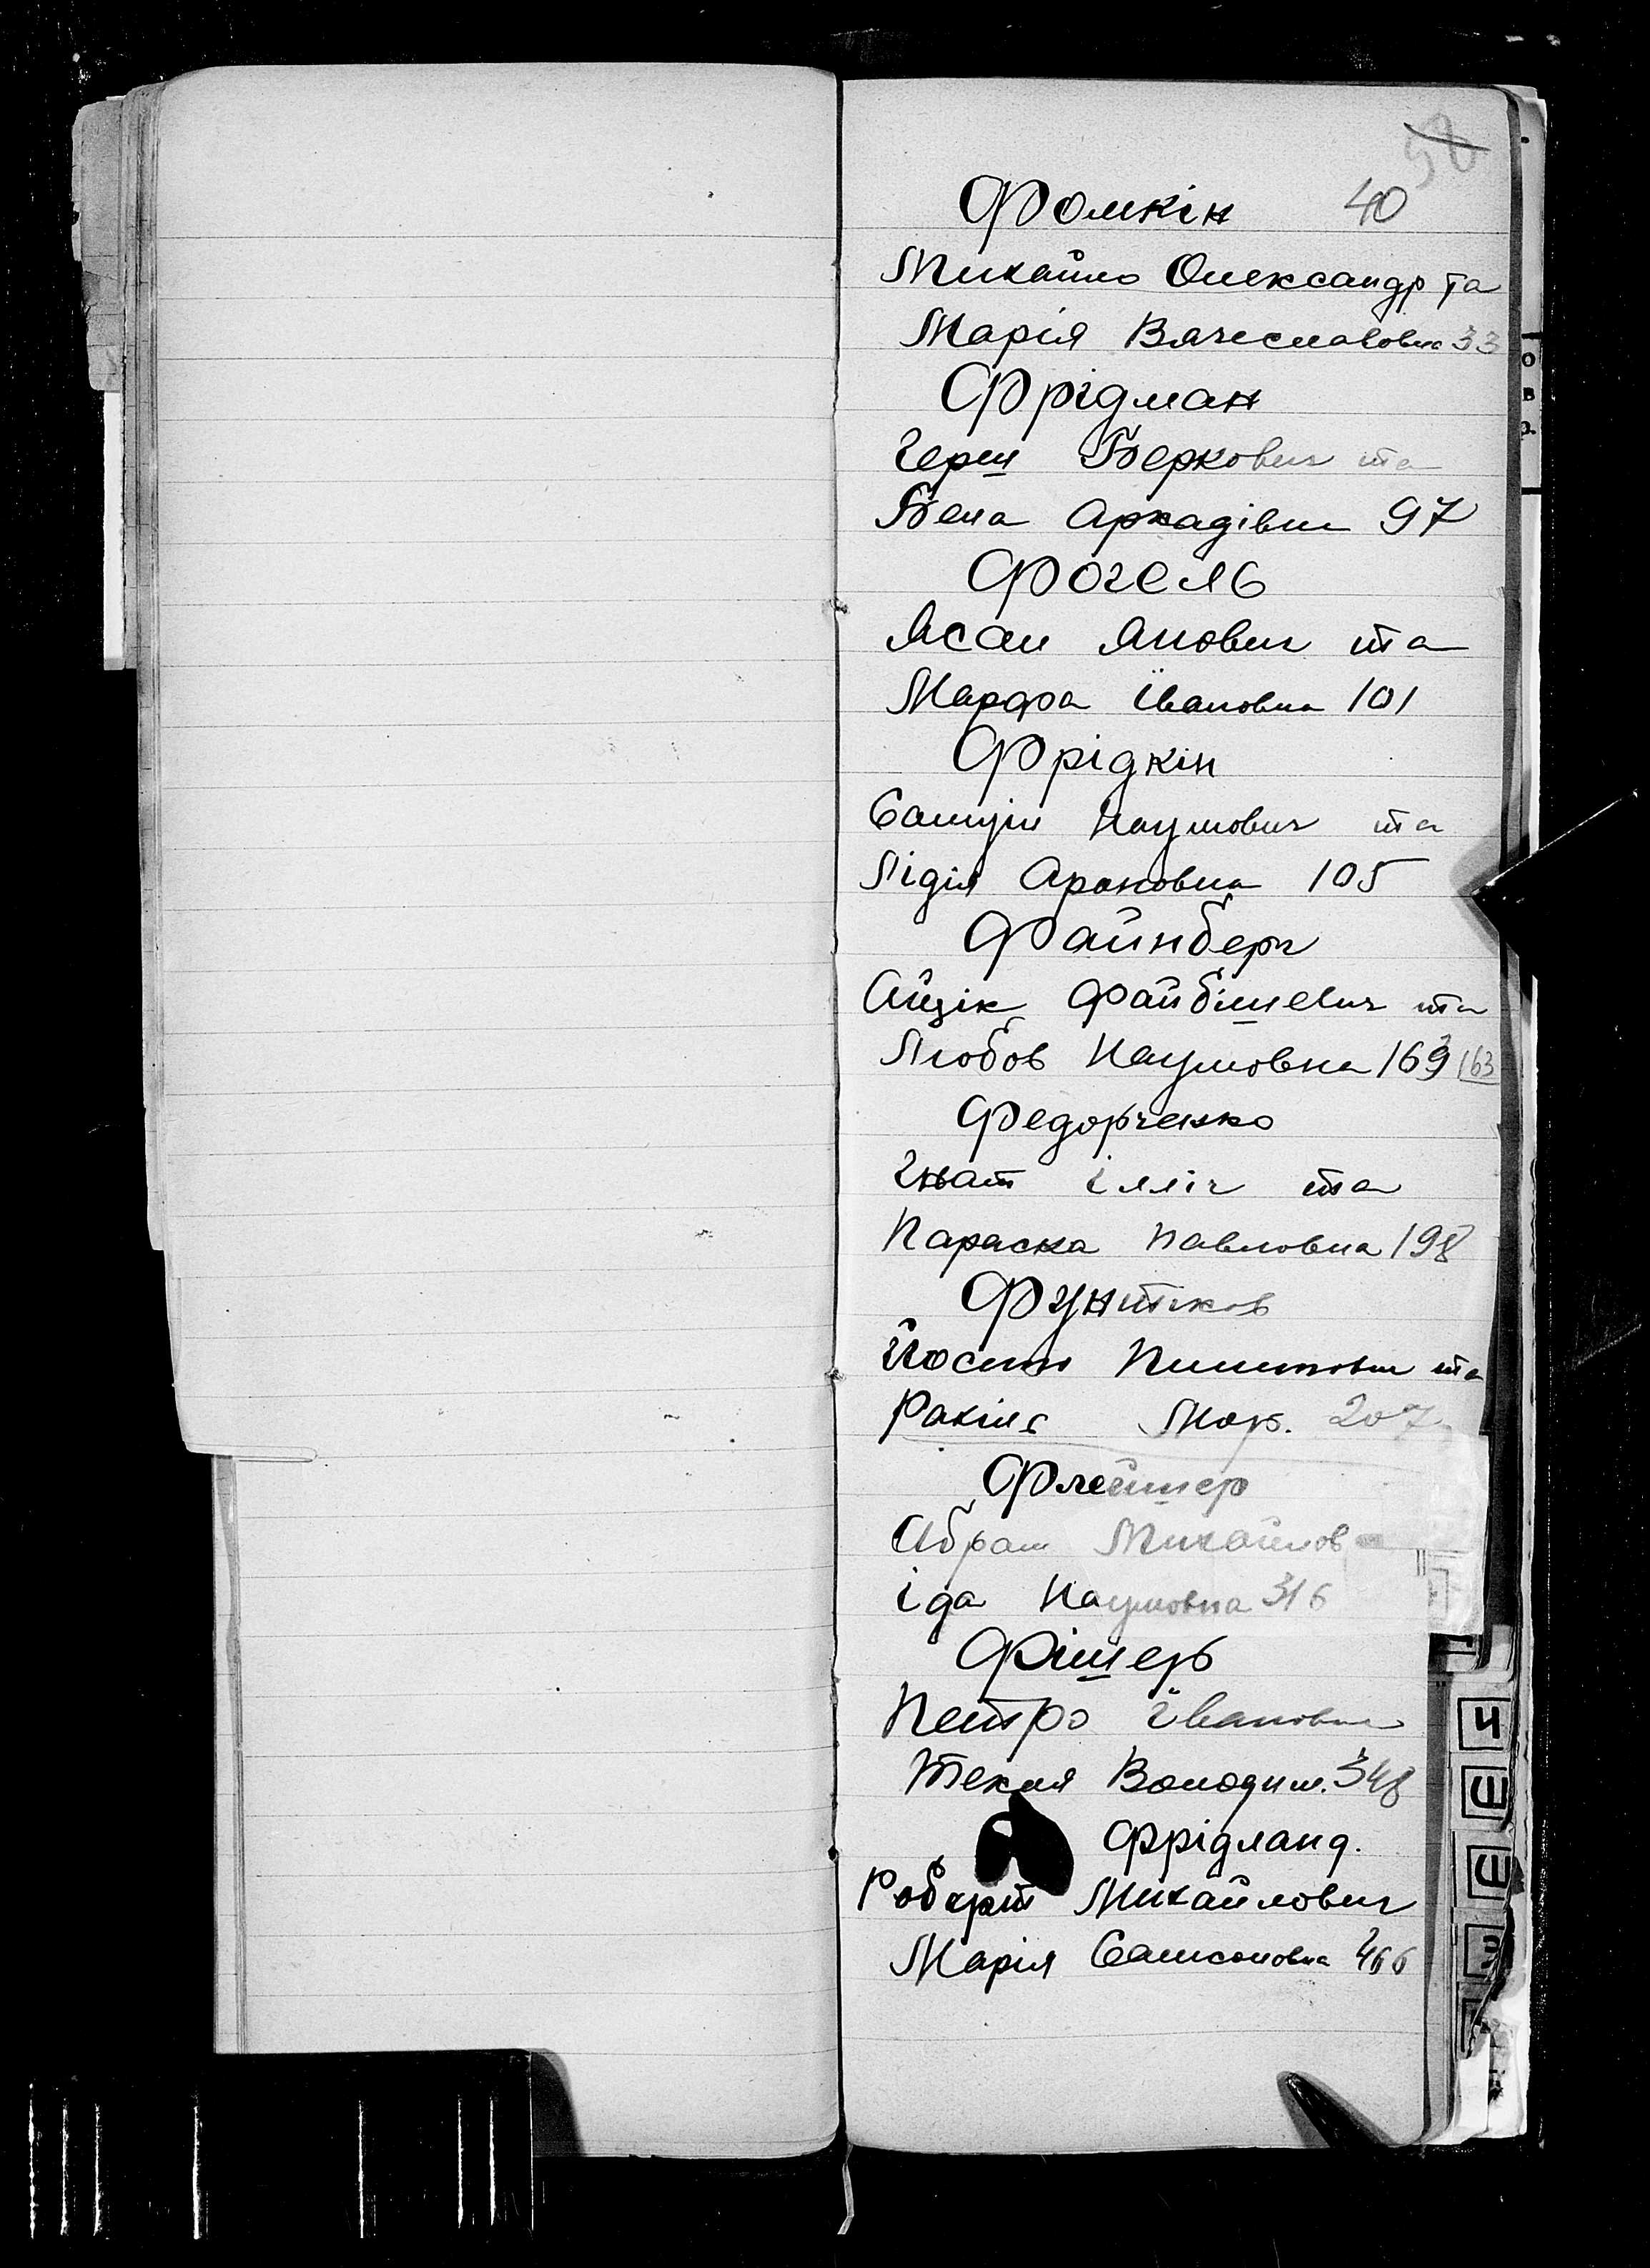 58
Фомкін 40
Михайло Олександр та
Марія Вячеславовна 33
Фрідман
Герш Беркович та
Бела Аркадівн 97
Фогель
Ясан Янович та
Марфа Івановна 101
Фрідкін
Самуїл Наумович та
Лідія Ароновна 105
Файнберг
Айзік Файбішевич та
Любов Наумовна 169 163
Федорченко
Гнат Ілліч та
Параска Павловна 198
Фунтіков
Йосип та
Рахіль Мор. 207
Флейшер
Абрам Михайлов
Іда Наумовна 316
Фішер
Петро Іванович
Текля Володим. 348
Фрідланд.
Роберт Михайлович
Марія Самсоновна 466
Ч
Ш